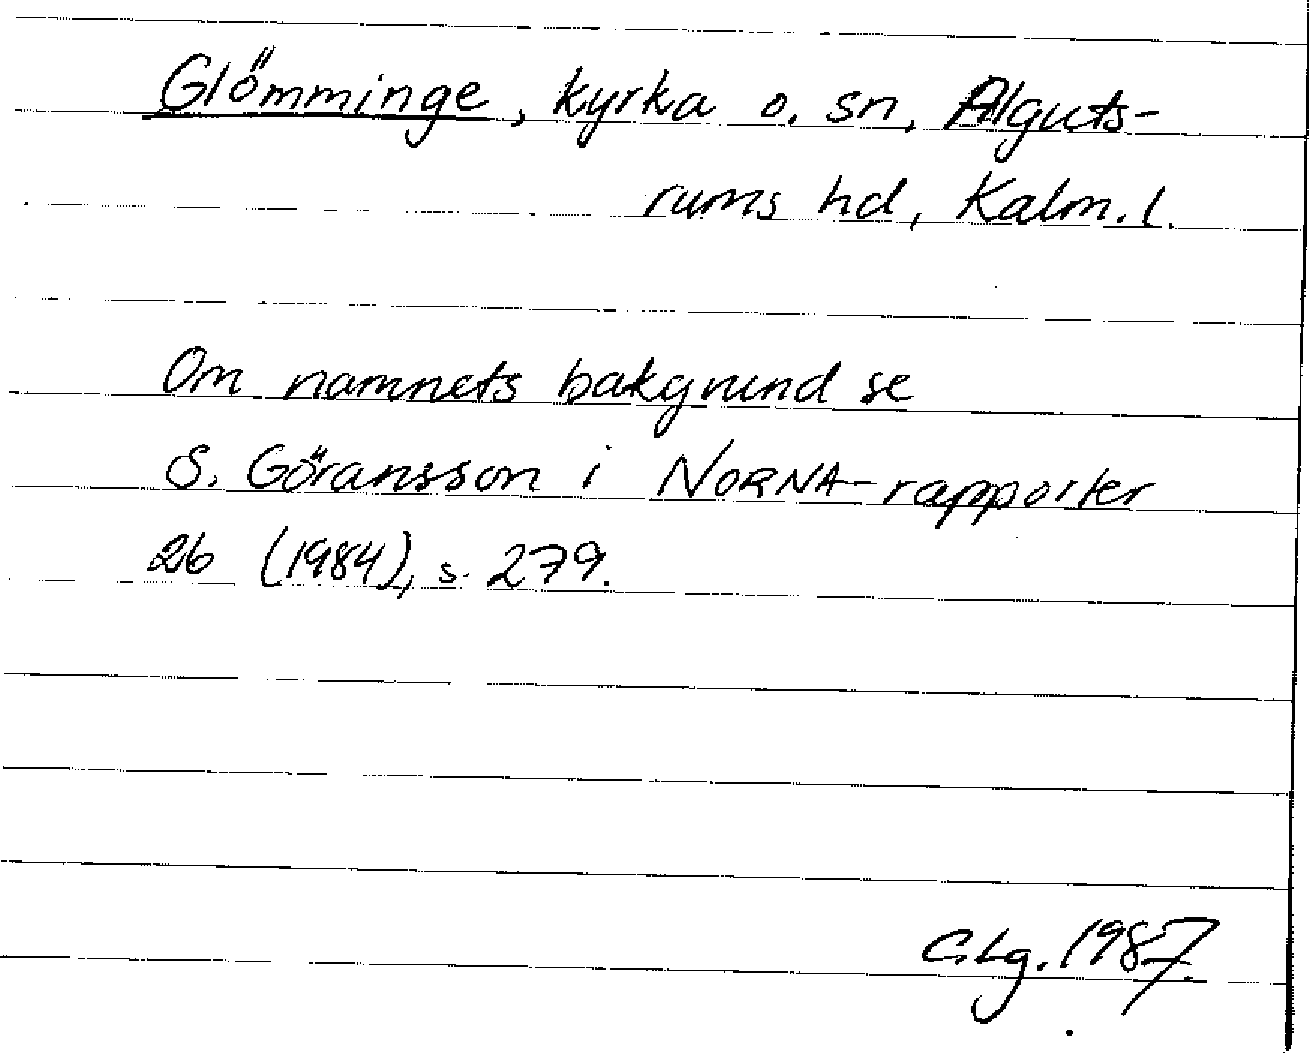 Glömminge, kyrka o. sn, Alguts-
rums hd, Kalm. l.
Om namnets bakgrund se
S. Göransson i NORNA-rapporter
26 (1984), s. 279.
G. Lg. 1987.